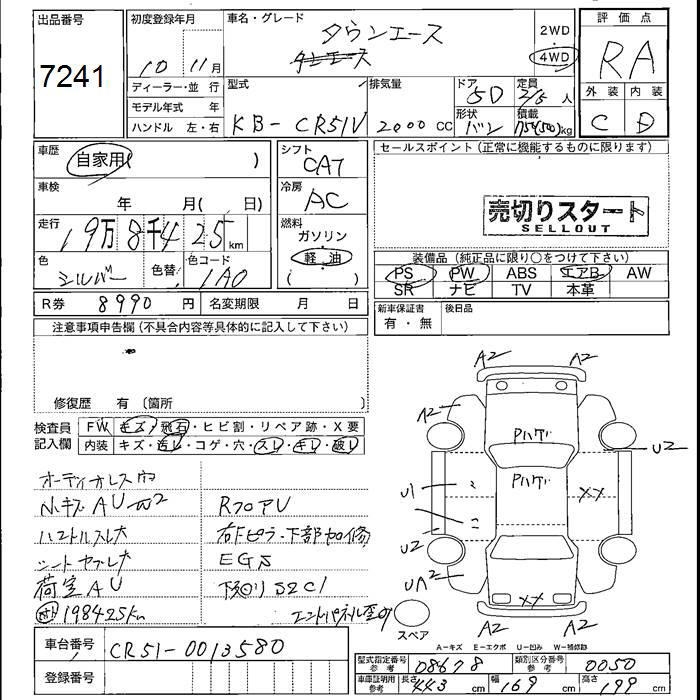 出品番号
7241
初度登録年月
10 11月
ディーラー・並行
モデル年式 年
ハンドル 左・右
車名・グレード
タウンエース
2WD
4WD
型式
KB- CR51V
排気量
2000 CC
ドア
5D
形状
バン
定員
2/5 人
積載
kg
評価点
RA
外装 内装
C D
車歴
自家用( )
車検
年 月( 日)
走行
19万8千425km
色
シルバー
色替
色コード
1A0
シフト
CA7
冷房
AC
燃料
ガソリン
軽油
( )
セールスポイント(正常に機能するものに限ります)
売切りスタート
SELLOUT
装備品(純正品に限り○をつけて下さい)
PS PW ABS エアB AW
SR ナビ TV 本革
R券 8990 円
名変期限 月 日
新車保証書
有・無
後日品
注意事項申告欄(不具合内容等具体的に記入して下さい)
修復歴 有(箇所 )
検査員
記入欄
FW キズ・飛石・ヒビ割・リペア跡・X要
内装 キズ・汚レ・コゲ・穴・スレ・キレ・破レ
オーディオレス
シートヤブレ大
荷室AU
198425Km
下部加修
下回りS2C1
A2 A2
A2
Pハゲ
U2
Pハゲ
U1
XX
U2
UA2
XX
A2 A2
スペア
A-キズ E-エクボ U-凹み W-補修跡
車台番号 CR51-0013580
登録番号
型式指定番号
参考
08678
類別区分番号
参考
0050
車庫証明用
参考
長さ 443 cm 幅 169 cm 高さ 199 cm